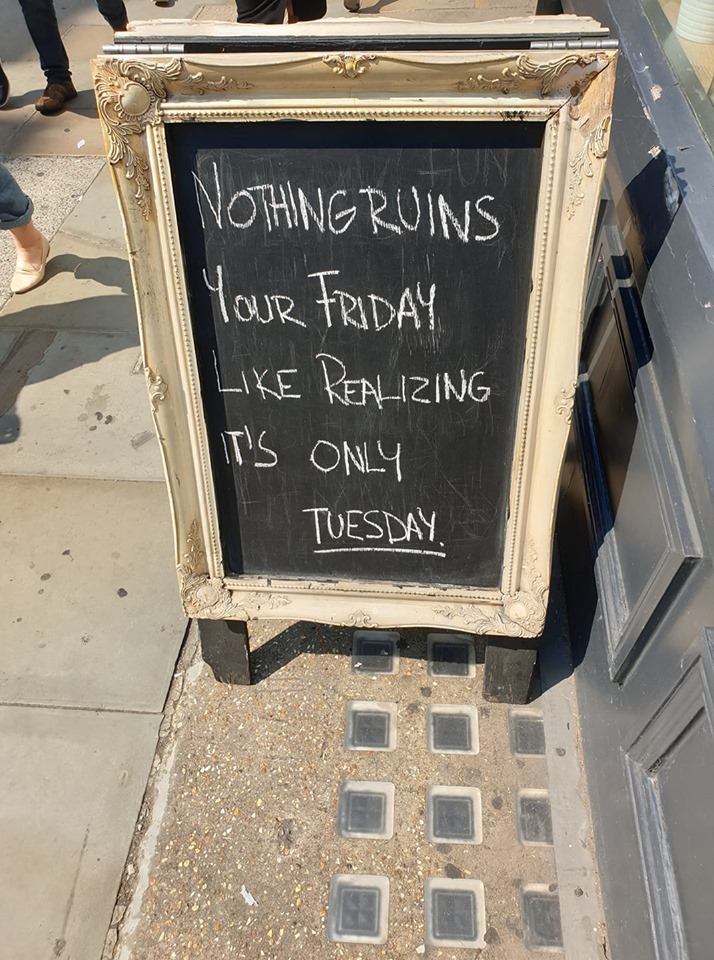 NOTHING RUINS
YOUR FRIDAY
LIKE REALIZING
IT'S ONLY
TUESDAY.